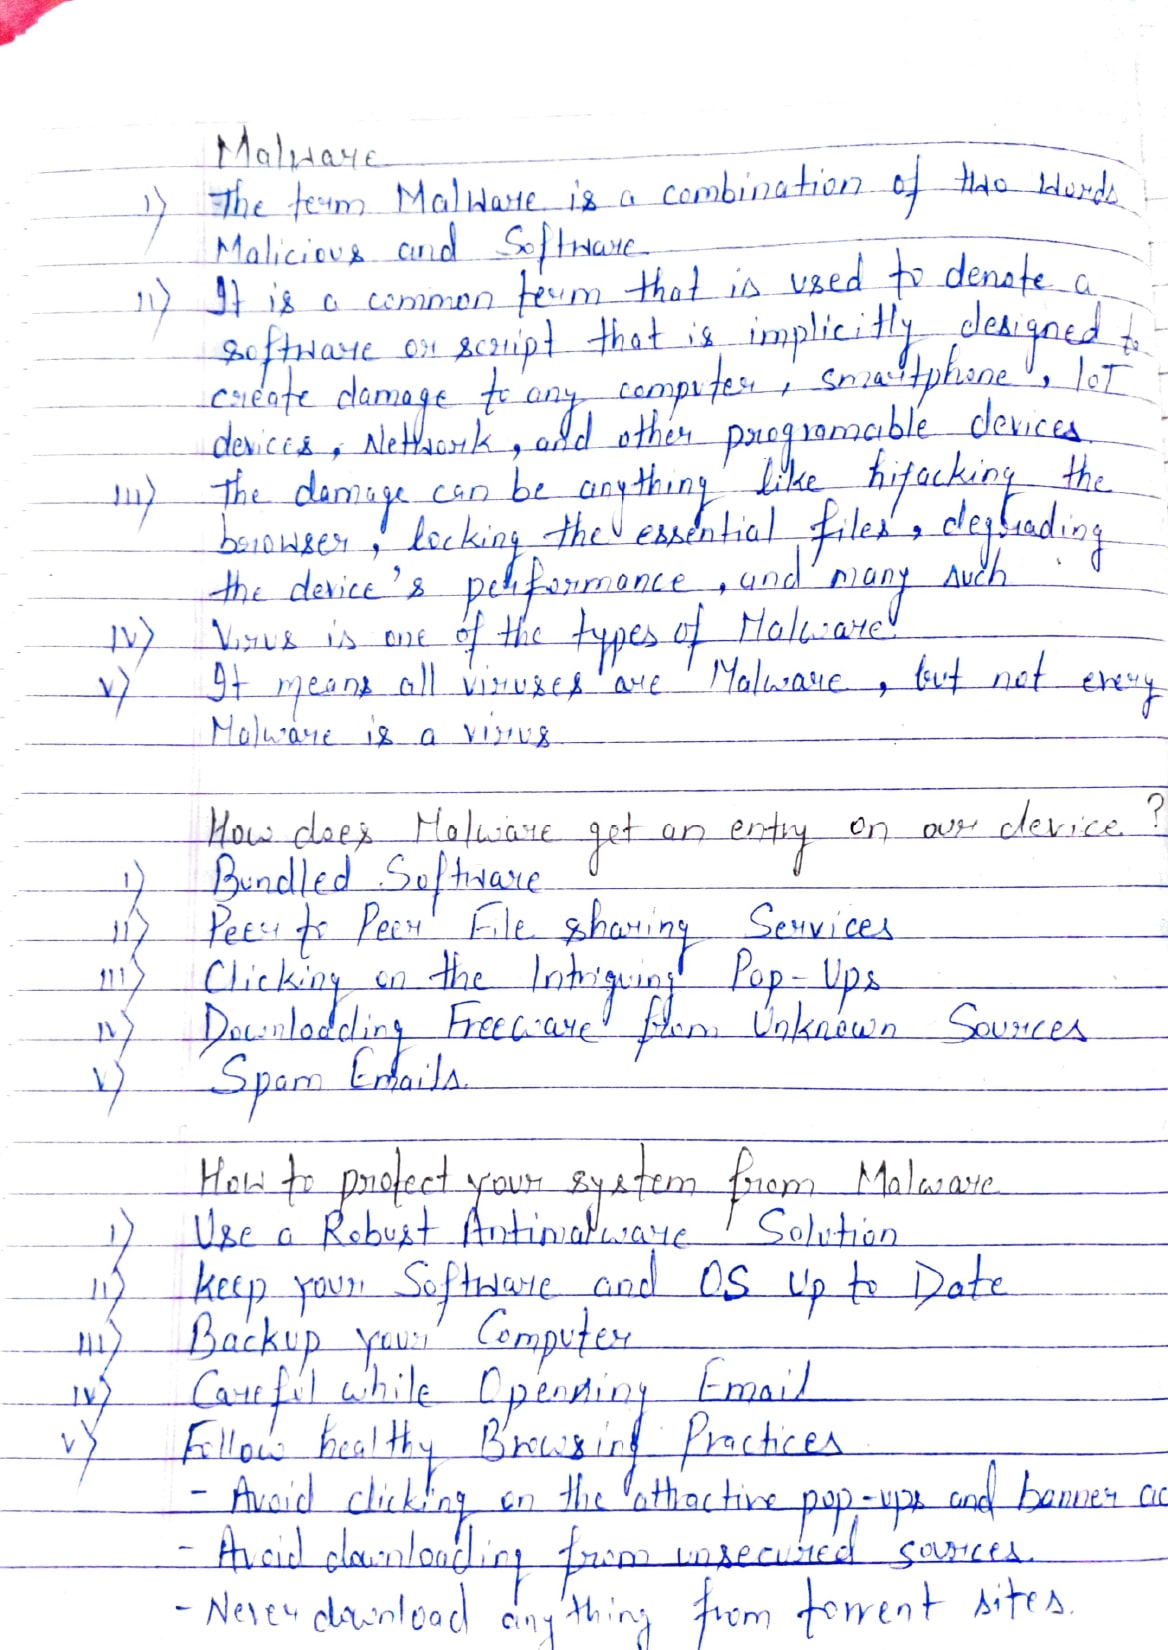 Malware
i) The term Malware is a combination of two words
Malicious and Software
ii) It is a common term that is used to denote a
software or script that is implicitly designed to
create damage to any computer, smartphone, IoT
devices, Network, and other programable devices.
iii) The damage can be anything like hijacking the
browser, locking the essential files, degrading
the device's performance, and many such
iv) Virus is one of the types of Malware.
v) It means all viruses are Malware, but not every
Malware is a virus
How does Malware get an entry on our device?
i) Bundled Software
ii) Peer to Peer File sharing Services
iii) Clicking on the Intriguing Pop-Ups
iv) Downloading Freeware from Unknown Sources
v) Spam Emails.
How to protect your system from Malware
i) Use a Robust Antimalware Solution
ii) Keep your Software and OS Up to Date
iii) Backup your Computer
iv) Careful while Openning Email
v) Follow healthy Browsing Practices
- Avoid clicking on the attractive pop-ups and banner
- Avoid downloading from unsecured sources.
- Never download anything from torrent sites.